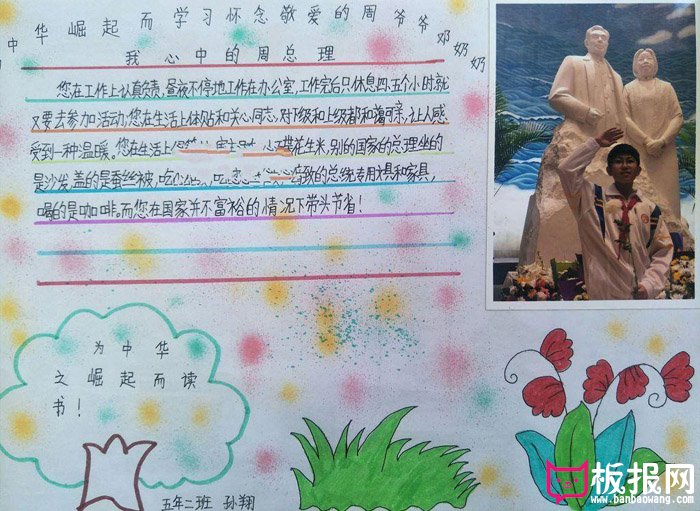 中华崛起而学习怀念敬爱的周爷爷邓奶奶
我心中的周总理
您在工作上认真负责,昼夜不停地工作在办公室,工作完后只休息四、五个小时就
又要去参加活动,您在生活上体贴和关心同志,对下级和上级都和蔼可亲,让人感
受到一种温暖。您在生活上 花生米,别的国家的总理坐的
是沙发,盖的是蚕丝被,吃 致的总统专用 具和家具,
喝的是咖啡。而您在国家并不富裕的情况下带头节省!
为中华
之崛起而读
书!
五年二班 孙翔
板报网
www.banbaowang.com